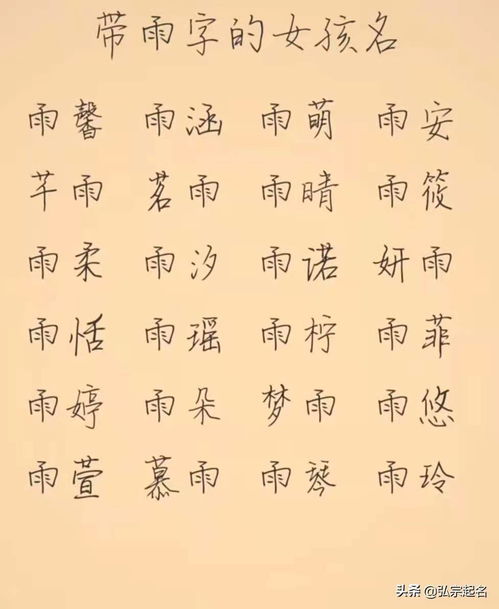 带雨字的女孩名
雨馨 雨涵 雨萌 雨安
芊雨 茗雨 雨晴 雨筱
雨柔 雨汐 雨诺 妍雨
雨恬 雨瑶 雨柠 雨菲
雨婷 雨朵 梦雨 雨悠
雨萱 慕雨 雨琴 雨玲
头条@弘宗起名